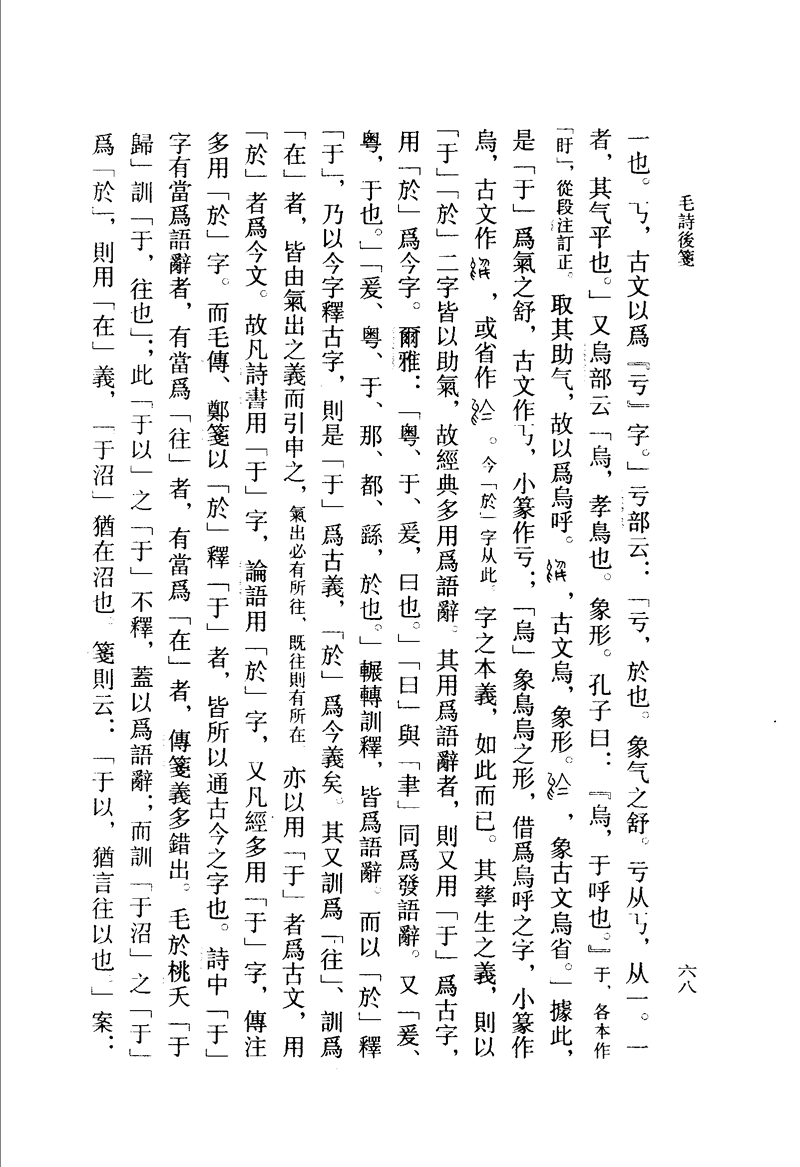 毛詩後箋
六八
一也。丂，古文以爲『亏』字。」亏部云：「亏，於也。象气之舒。亏从丂，从一。一
者，其气平也。」又烏部云「烏，孝鳥也。象形。孔子曰：『烏，于呼也。』于、各本作
「盱」，從段注訂正。取其助气，故以爲烏呼。，古文烏，象形。，象古文烏省。」據此，
是「于」爲氣之舒，古文作丂，小篆作亏；「烏」象鳥烏之形，借爲烏呼之字，小篆作
烏，古文作，或省作。今「於」字从此。字之本義，如此而已。其孳生之義，則以
「于」「於」二字皆以助氣，故經典多用爲語辭。其用爲語辭者，則又用「于」爲古字，
用「於」爲今字。爾雅：「粵、于、爰，曰也。」「曰」與「聿」同爲發語辭。又「爰、
粵，于也。」「爰、粵、于、那、都、繇，於也。」輾轉訓釋，皆爲語辭。而以「於」釋
「于」，乃以今字釋古字，則是「于」爲古義，「於」爲今義矣。其又訓爲「往」、訓爲
「在」者，皆由氣出之義而引申之，氣出必有所往、既往則有所在。亦以用「于」者爲古文，用
「於」者爲今文。故凡詩書用「于」字，論語用「於」字，又凡經多用「于」字，傳注
多用「於」字。而毛傳、鄭箋以「於」釋「于」者，皆所以通古今之字也。詩中「于」
字有當爲語辭者，有當爲「往」者，有當爲「在」者，傳箋義多錯出。毛於桃夭「于
歸」訓「于，往也」；此「于以」之「于」不釋，蓋以爲語辭；而訓「于沼」之「于」
爲「於」，則用「在」義，「于沼」猶在沼也。箋則云：「于以，猶言往以也。」案：